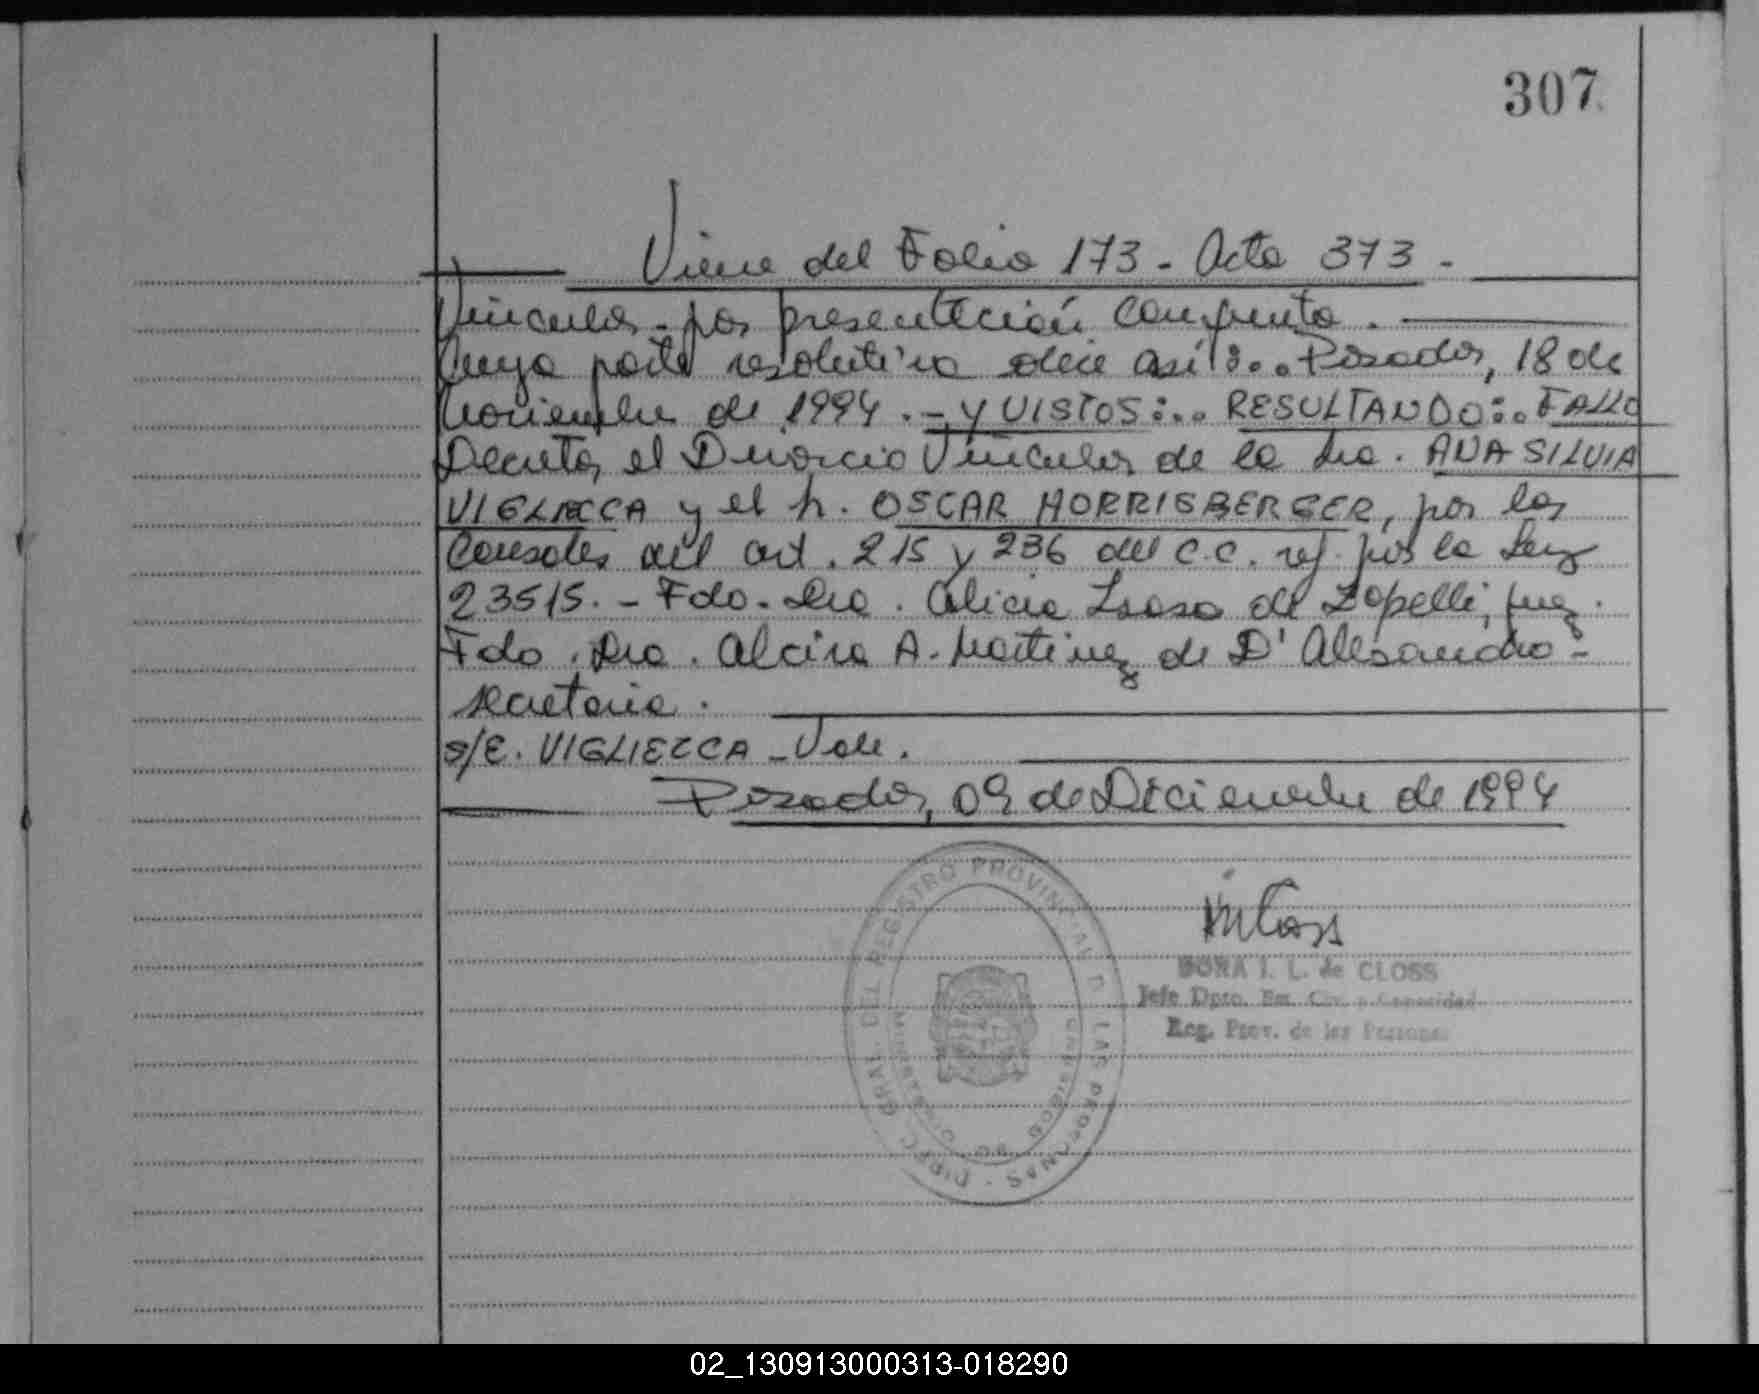 307
Viene del Folio 173 - Acta 373 -
Vincular - por presentación conjunta .
Cuya parte resolutiva dice así:.. Posadas, 18 de
Noviembre de 1994 .- Y VISTOS:.. RESULTANDO:. FALLO
Decretar el Divorcio Vincular de la Sra. ANA SILVIA
VIGLIECCA y el Sr. OSCAR HORRISBERGER, por las
Causales del art. 215 y 236 del C.C. ref. por la Ley
23515. - Fdo. Dra. Alicia de Zapelli, Juez.
Fdo. Dra. Alcira A. Martinez de D' Alesandro -
secretaria .
s/E. VIGLIECCA - Vale.
Posadas, 09 de Diciembre de 1994
DIREC. GRAL. DEL REGISTRO PROVINCIAL D LAS PERSONAS
MINISTERIO DE GOBIERNO
DORA I. L. de CLOSS
Jefe Dpto. Est. Civ. y Capacidad
Reg. Prov. de las Personas
02_130913000313-018290